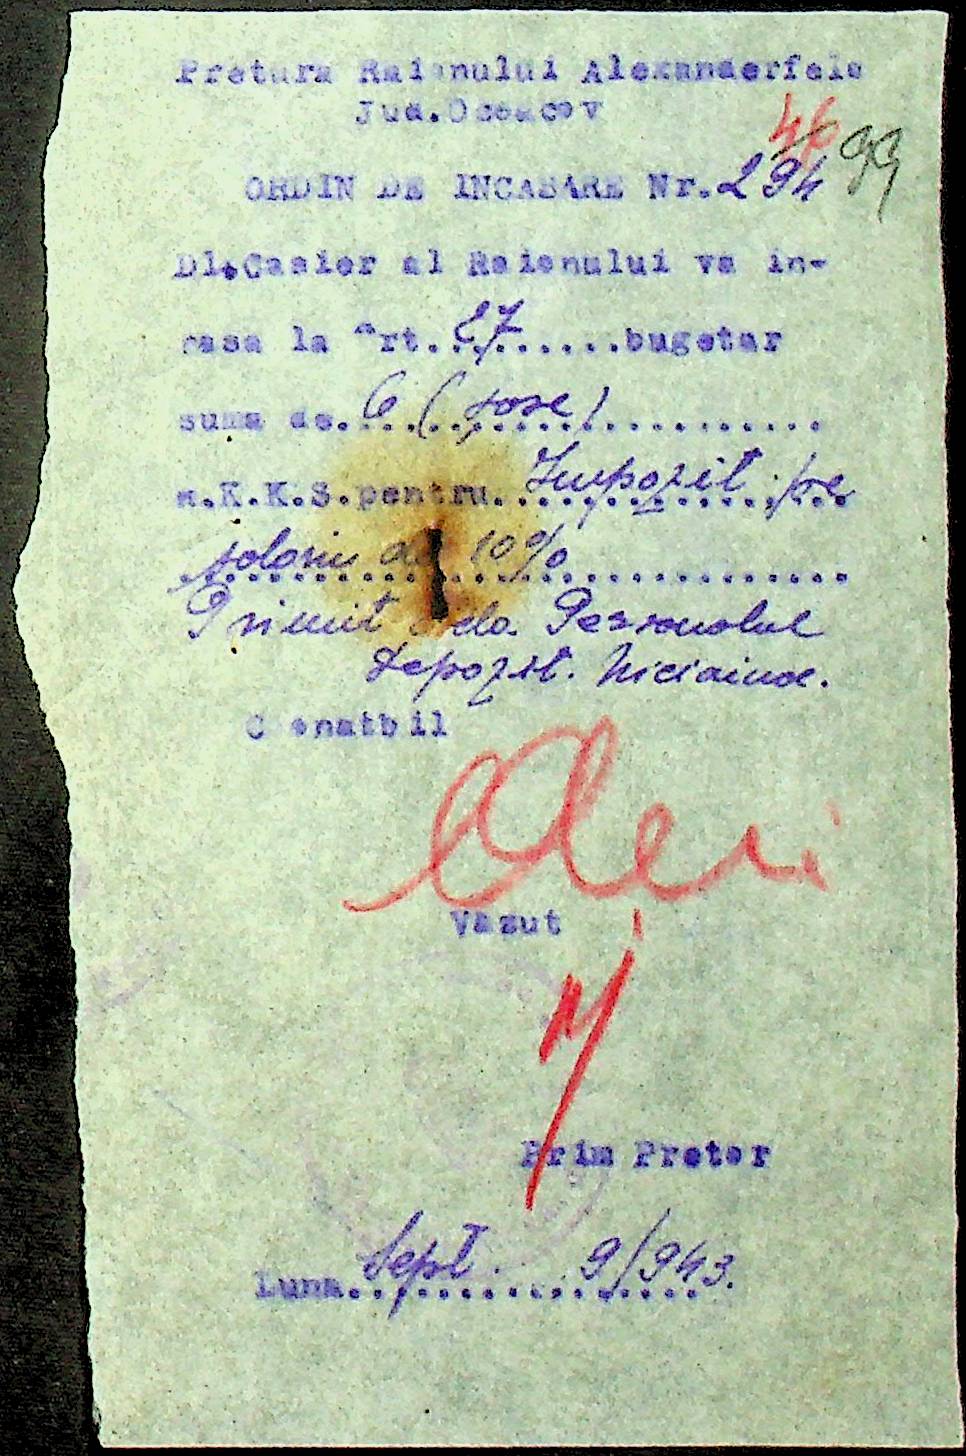 Pretura Raionului Alexanderfeld
Jud.Oceacov
46 99
ORDIN DE INCASARE Nr. 294
Dl.Casier al Raionului va in-
casa la Art. 27 bugetar
suma de. 6 (șase)
R.K.K.S.pentru. Impozit pe
salariu de 10%
Primit dela Personalul
Depozit.
Conatbil
Vazut
Prim Pretor
Luna. Sept. 9/943.